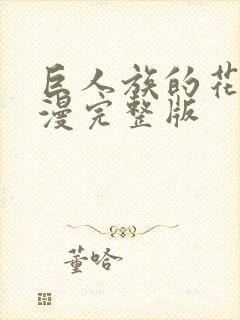 巨人族的花
漫完整版
董哈